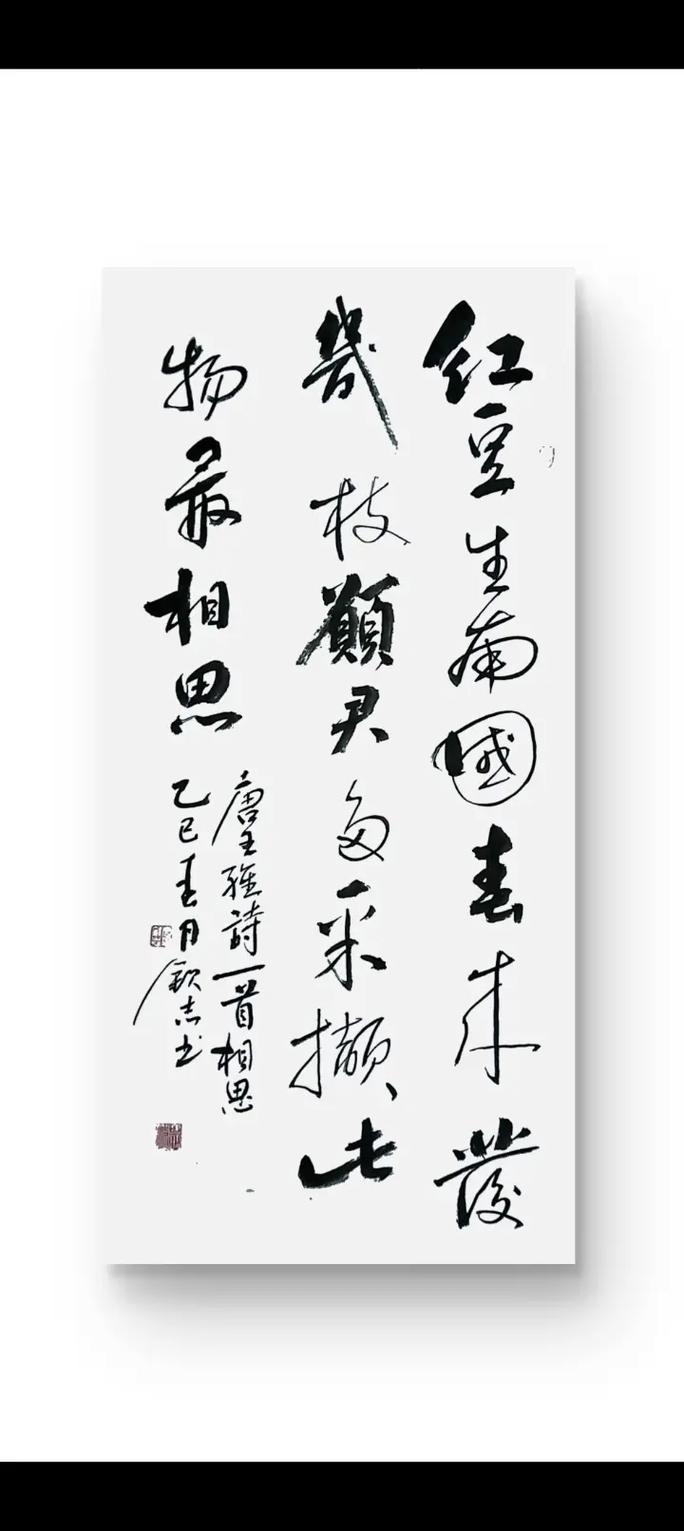 红豆生南國春来發
幾枝願君多采擷此
物最相思
唐王維詩一首相思
乙巳春月欽志书